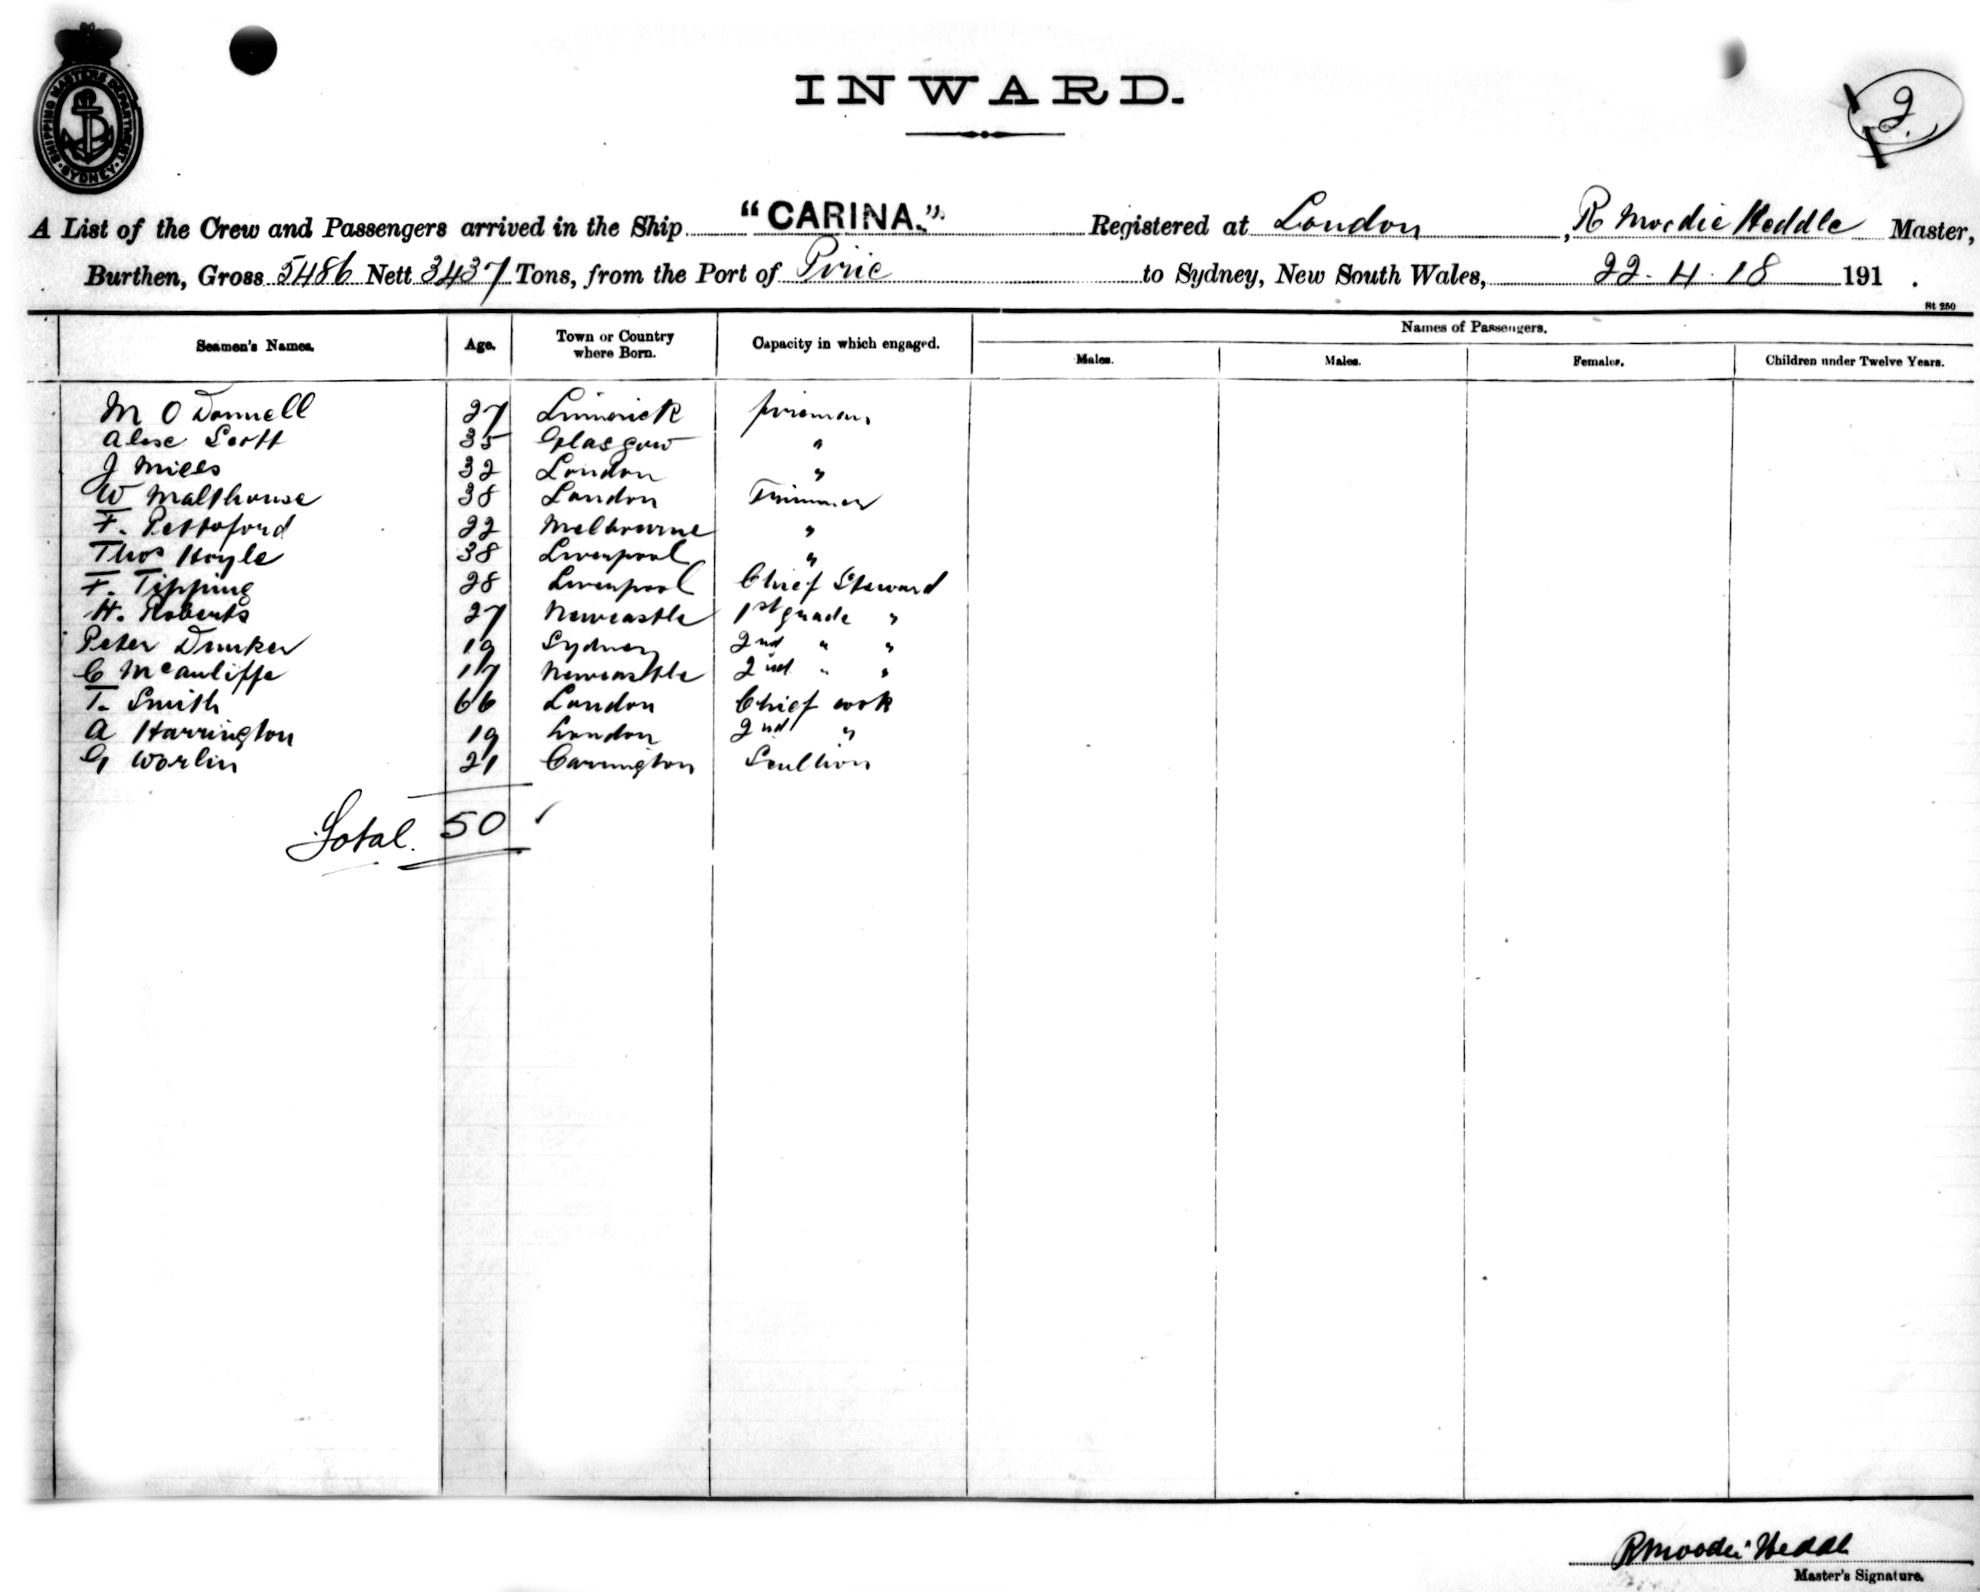 SHIPPING MASTERS DEPARTMENT · SYDNEY ·
INWARD.
2
A List of the Crew and Passengers arrived in the Ship "CARINA." Registered at London, R Moodie Heddle Master,
Burthen, Gross 5486 Nett 3437 Tons, from the Port of Pirie to Sydney, New South Wales, 22.4.18 191 .
St 250
Seamen's Names. Age. Town or Country where Born. Capacity in which engaged. Names of Passengers.
Males. Males. Females. Children under Twelve Years.
M O Donnell 27 Limerick fireman
Alex Scott 35 Glasgow "
J Mills 32 London "
W Malthouse 38 London Trimmer
F. Pettoford 22 Melbourne "
Thos Hoyle 38 Liverpool "
F. Tipping 28 Liverpool Chief Steward
H. Roberts 27 Newcastle 1st grade "
Peter Dunker 19 Sydney 2nd " "
C McAuliffe 17 Newcastle 2nd " "
T. Smith 66 London Chief cook
A Harrington 19 London 2nd "
G Worlin 21 Carrington Scullion
Total. 50 ✓
R Moodie Heddle
Master's Signature.